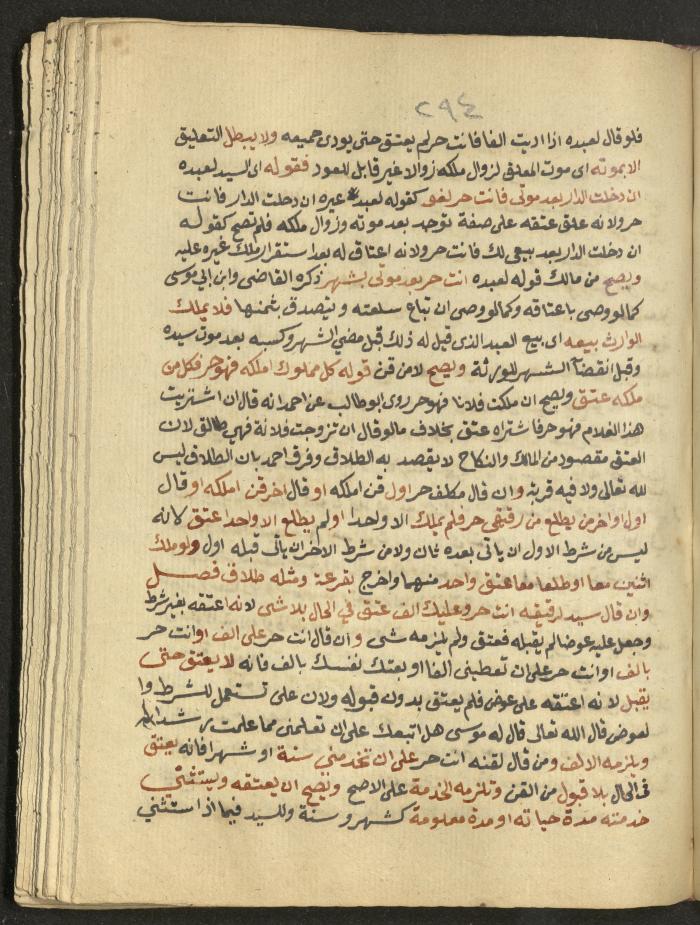 ٢٩٤
فلو قال لعبده اذا اديت الفا فانت حر لم يعتق حتى يودى جميعه ولا يبطل التعليق
الا بموته اى موت المعلق لزوال ملكه زوالا غير قابل للعود فقوله اى السيد لعبده
ان دخلت الدار بعد موتى فانت حر لغو كقوله لعبد غيره ان دخلت الدار فانت
حر ولانه علق عتقه على صفة توجد بعد موته وزوال ملكه فلم تصح كقوله
ان دخلت الدار بعد بيعى لك فانت حر ولانه اعتاق له بعد استقرار ملك غيره عليه
ويصح من مالك قوله لعبده انت حر بعد موتى بشهر ذكره القاضى وابن ابى موسى
كما لو وصى باعتاقه وكما لو وصى ان تباع سلعته ويتصدق بثمنها فلا يملك
الوارث بيعه اى بيع العبد الذى قيل له ذلك قبل مضي الشهر وكسبه بعد موت سيده
وقبل انقضآ الشهر للورثة ويصح لا من قن قوله كل مملوك املكه فهو حر فكل من
ملكه عتق ويصح ان ملكت فلانا فهو حر روى ابو طالب عن احمد انه قال ان اشتريت
هذا الغلام فهو حر فاشتراه عتق بخلاف ما لو قال ان تزوجت فلانة فهي طالق لان
العتق مقصود من المالك والنكاح لا يقصد به الطلاق وفرق احمد بان الطلاق ليس
لله تعالى ولا فيه قربة وان قال مكلف حر اول قن املكه او قال اخر قن املكه او قال
اول او اخر من يطلع من رقيقى حر فلم يملك الا واحدا او لم يطلع الا واحد اعتق لانه
ليس من شرط الاول ان ياتى بعده ثان ولا من شرط الاخر ان ياتى قبله اول ولو ملك
اثنين معا او طلعا معا عتق واحد منهما واخرج بقرعة ومثله طلاق فصل
وان قال سيد لرقيقه انت حر وعليك الف عتق في الحال بلا شى لانه اعتقه بغير شرط
وجعل عليه عوضا لم يقبله فعتق ولم يلزمه شى وان قال انت حر على الف او انت حر
بالف او انت حر على ان تعطينى الفا او بعتك نفسك بالف فانه لا يعتق حتى
يقبل لانه اعتقه على عوض فلم يعتق بدون قبوله ولان على تستعمل للشرط وا
لعوض قال الله تعالى قال له موسى هل اتبعك على ان تعلمنى مما علمت رشدا
ويلزمه الالف ومن قال لقنه انت حر على ان تخدمني سنة او شهرا فانه يعتق
فى الحال بلا قبول من القن وتلزمه الخدمة على الاصح ويصح ان يعتقه ويستثنى
خدمته مدة حياته او مدة معلومة كشهر وسنة وللسيد فيما اذا استثنى